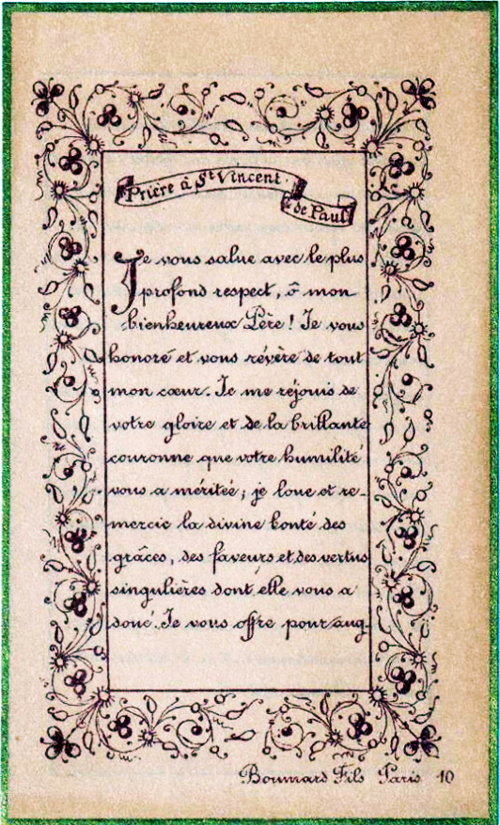 Prière à St Vincent
de Paul
Je vous salue avec le plus
profond respect, ô mon
bienheureux Père ! Je vous
honore et vous révère de tout
mon cœur. Je me réjouis de
votre gloire et de la brillante
couronne que votre humilité
vous a méritée ; je loue et re-
mercie la divine bonté des
grâces, des faveurs et des vertus
singulières dont elle vous a
doué. Je vous offre pour aug
Boumard Fils Paris 10